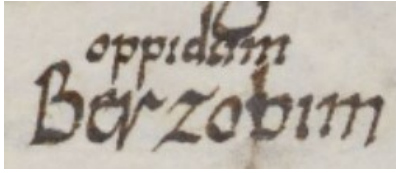 oppidum
Berzobim